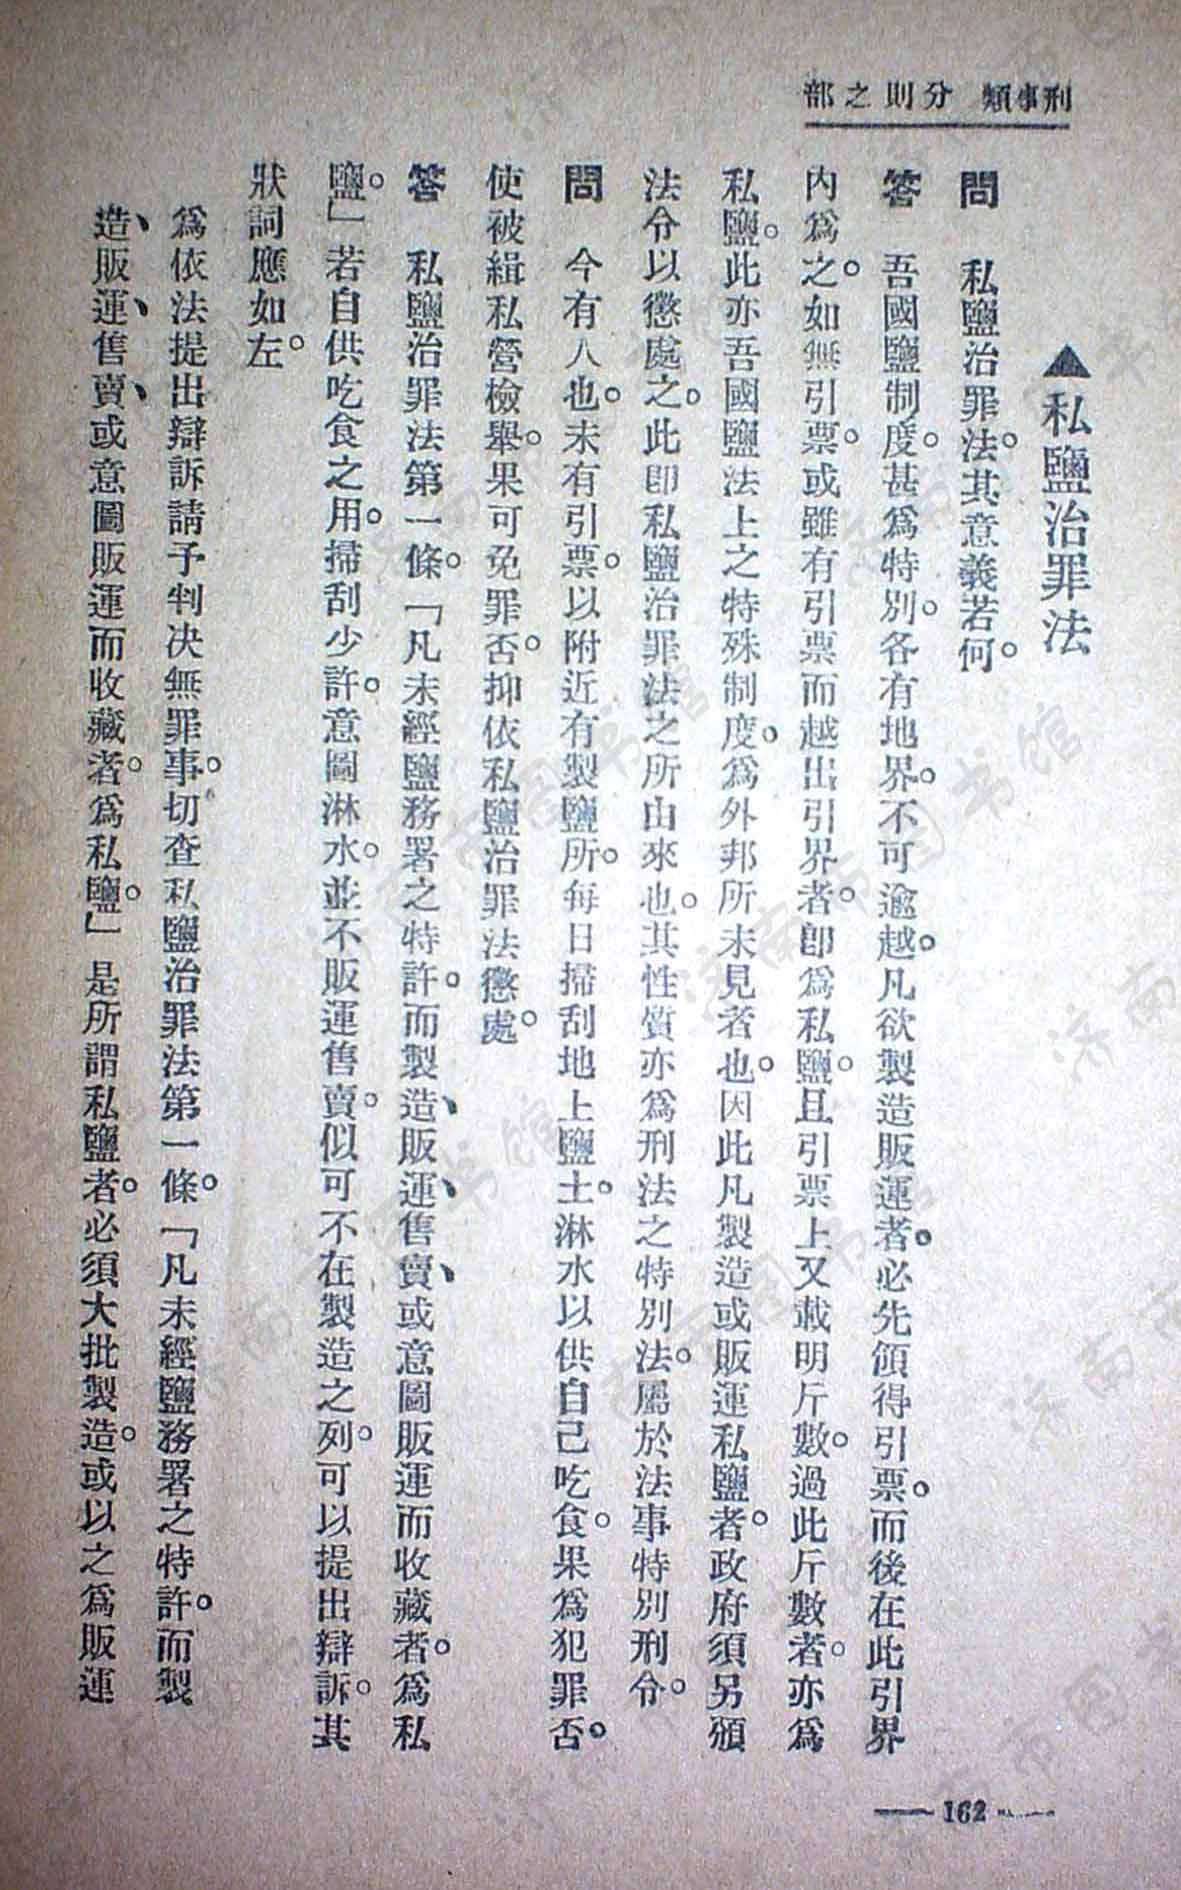 刑事類 分則之部
▲私鹽治罪法
問 私鹽治罪法。其意義若何。
答 吾國鹽制度。甚爲特別。各有地界。不可逾越。凡欲製造販運者。必先領得引票。而後在此引界
內爲之。如無引票。或雖有引票而越出引界者。卽爲私鹽。且引票上又載明斤數。過此斤數者。亦爲
私鹽。此亦吾國鹽法上之特殊制度。爲外邦所未見者也。因此凡製造或販運私鹽者。政府須另頒
法令以懲處之。此卽私鹽治罪法之所由來也。其性質亦爲刑法之特別法。屬於法事特別刑令。
問 今有人也。未有引票。以附近有製鹽所。每日掃刮地上鹽土。淋水以供自己吃食。果爲犯罪否。
使被緝私營檢舉。果可免罪否。抑依私鹽治罪法懲處。
答 私鹽治罪法第一條。「凡未經鹽務署之特許。而製造、販運、售賣、或意圖販運而收藏者。爲私
鹽。」若自供吃食之用。掃刮少許。意圖淋水。並不販運售賣。似可不在製造之列。可以提出辯訴。其
狀詞應如左。
爲依法提出辯訴請予判决無罪事。切查私鹽治罪法第一條。「凡未經鹽務署之特許。而製
造、販運、售賣、或意圖販運而收藏者。爲私鹽。」是所謂私鹽者。必須大批製造。或以之爲販運
162
济南市图书馆